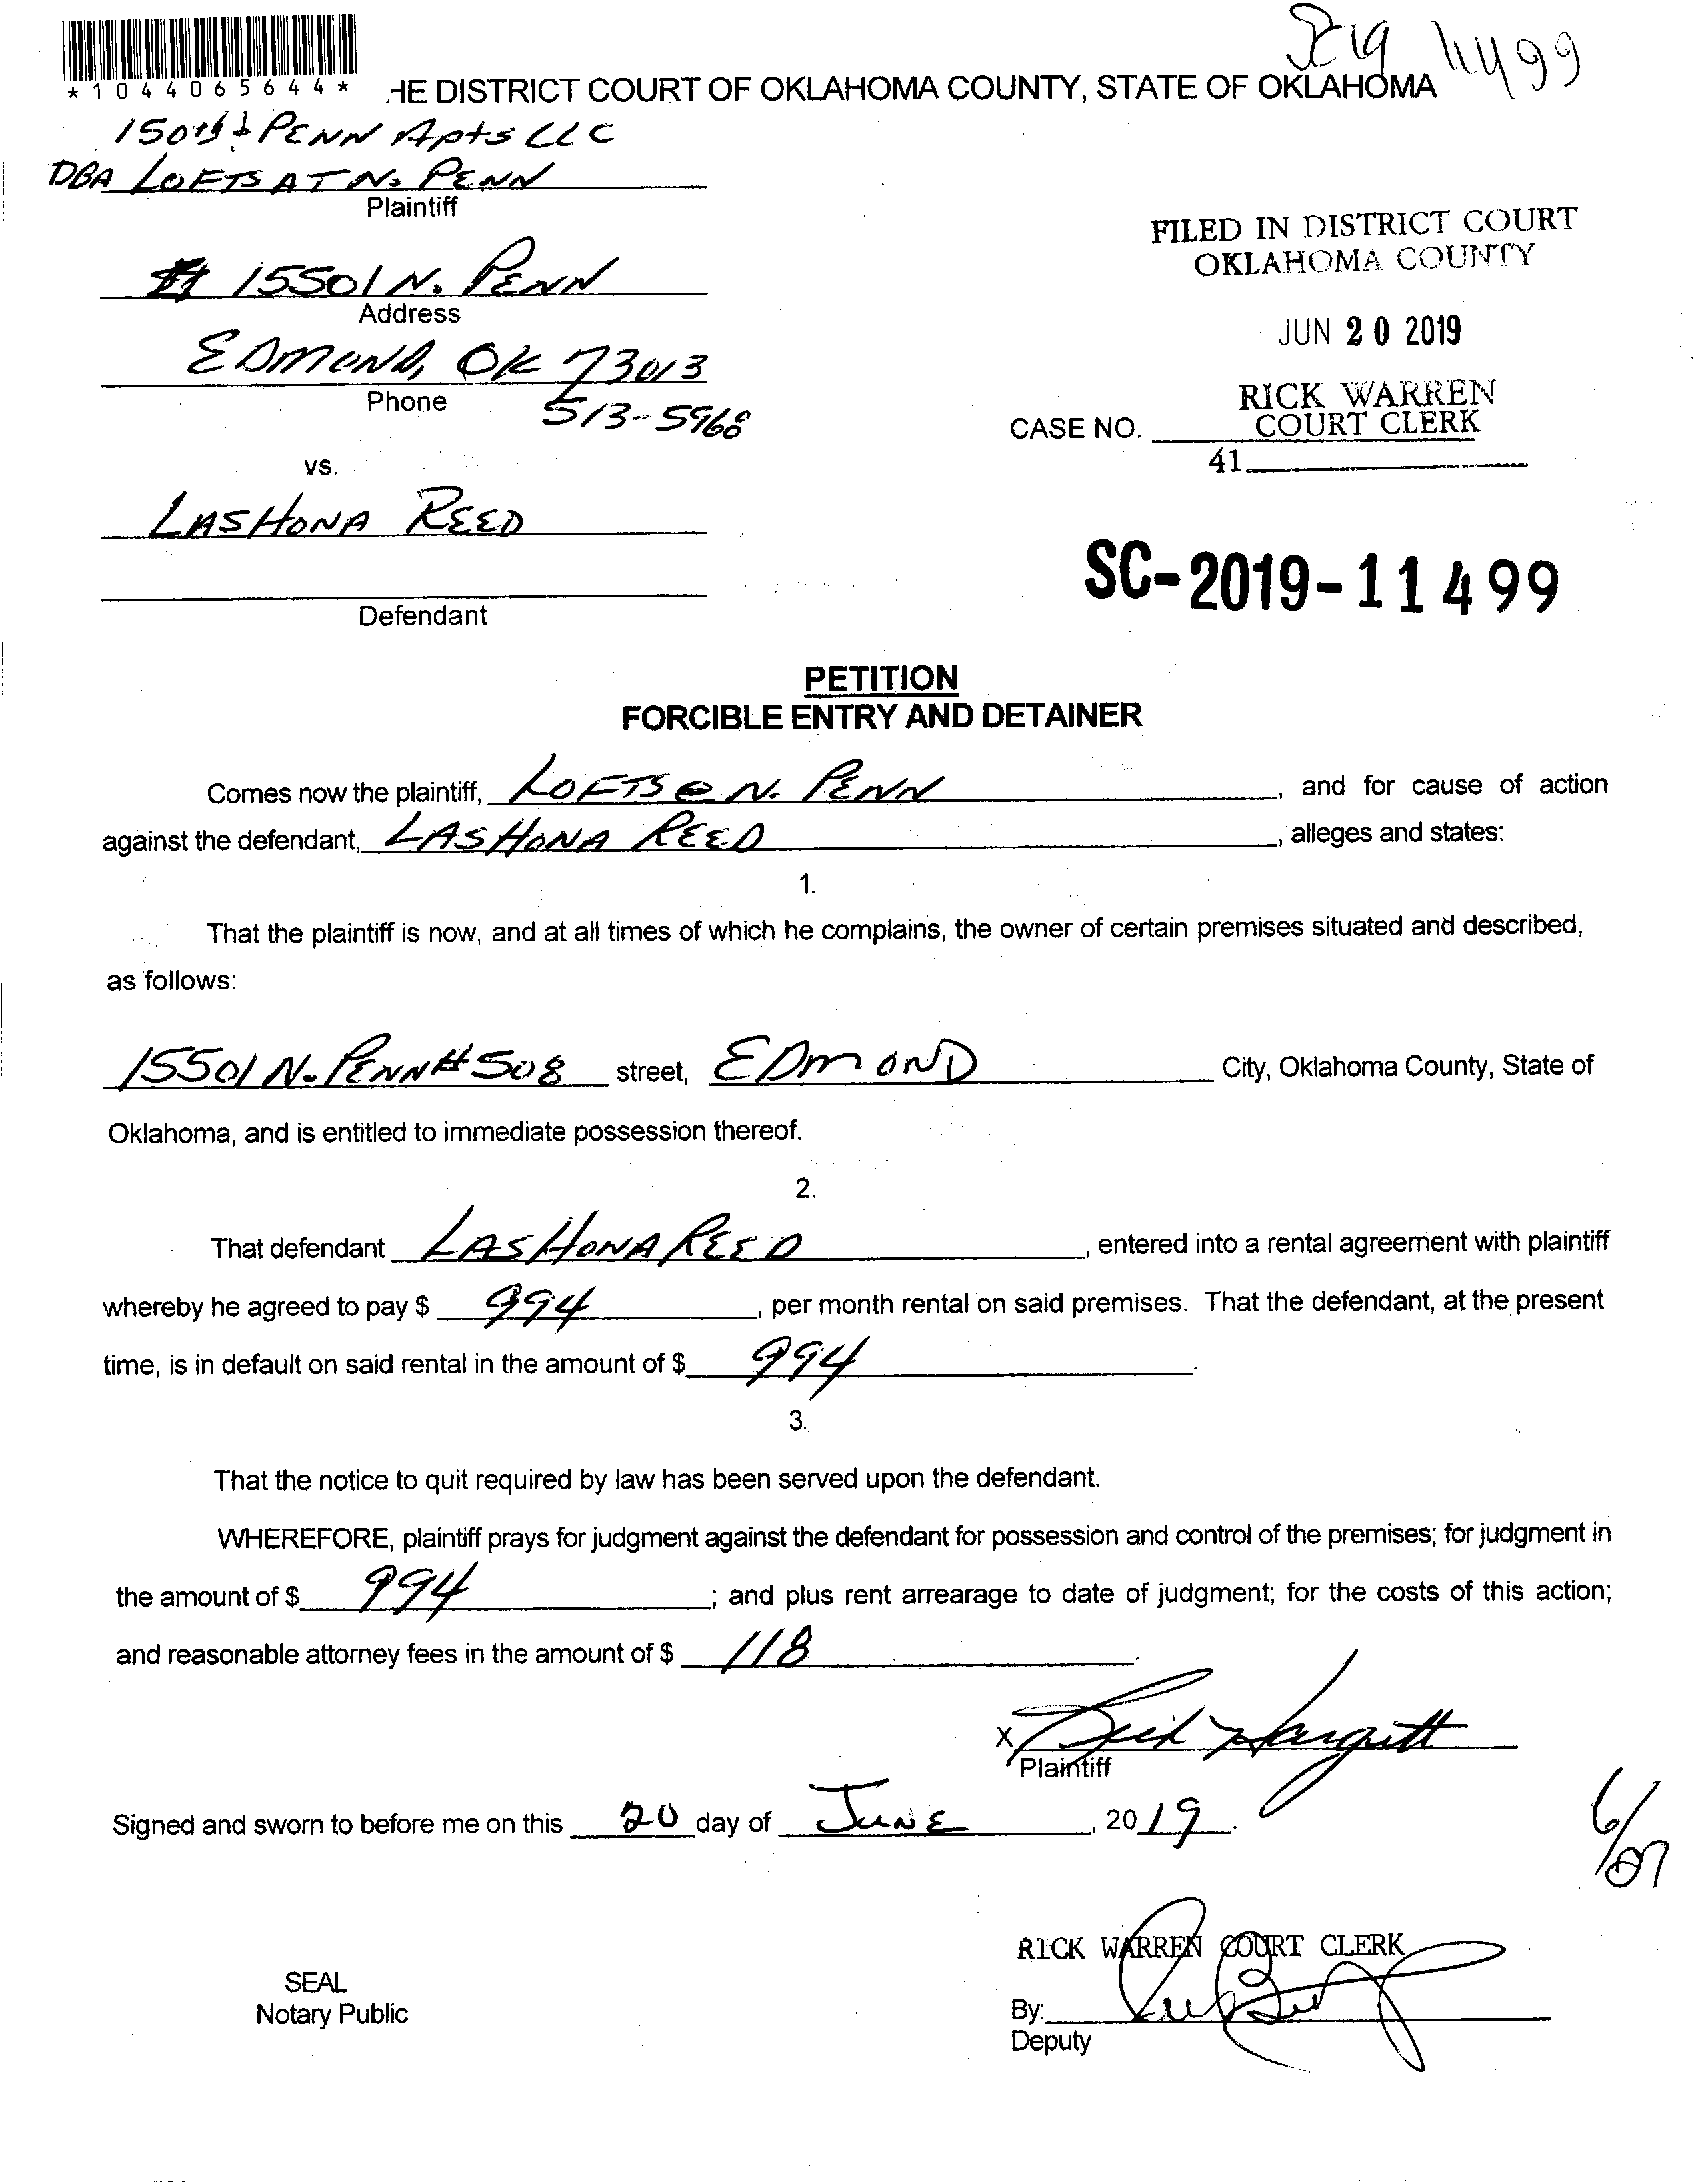 SC 19 11499
*1044065644* HE DISTRICT COURT OF OKLAHOMA COUNTY, STATE OF OKLAHOMA
150th & PENN Apts LLC
DBA LOFTS AT N. PENN
Plaintiff
FILED IN DISTRICT COURT
OKLAHOMA COUNTY
15501 N. PENN
Address
JUN 20 2019
EDMOND, OK 73013
Phone 513-5968
RICK WARREN
COURT CLERK
CASE NO.
41
vs.
LASHONA REED
Defendant
SC-2019-11499
PETITION
FORCIBLE ENTRY AND DETAINER
Comes now the plaintiff, LOFTS @ N. PENN, and for cause of action
against the defendant, LASHONA REED, alleges and states:
1.
That the plaintiff is now, and at all times of which he complains, the owner of certain premises situated and described,
as follows:
15501 N. PENN #508 street, EDMOND City, Oklahoma County, State of
Oklahoma, and is entitled to immediate possession thereof.
2.
That defendant LASHONA REED, entered into a rental agreement with plaintiff
whereby he agreed to pay $ 994, per month rental on said premises. That the defendant, at the present
time, is in default on said rental in the amount of $ 994.
3.
That the notice to quit required by law has been served upon the defendant.
WHEREFORE, plaintiff prays for judgment against the defendant for possession and control of the premises; for judgment in
the amount of $ 994; and plus rent arrearage to date of judgment; for the costs of this action;
and reasonable attorney fees in the amount of $ 118.
X Hargett
Plaintiff
Signed and sworn to before me on this 20 day of JUNE, 2019.
6/27
RICK WARREN COURT CLERK
SEAL
Notary Public
By:
Deputy